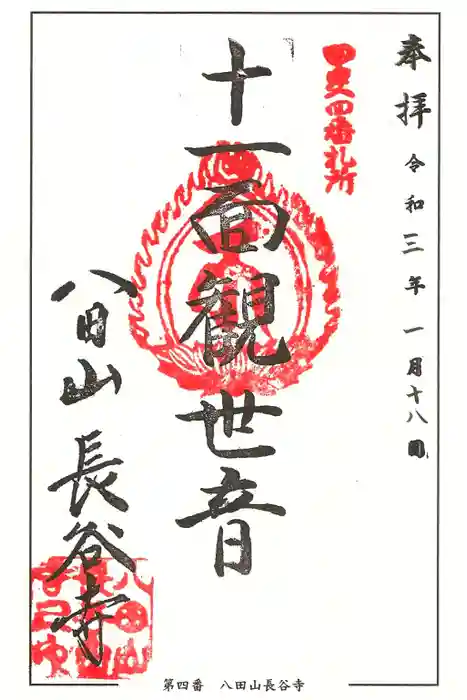 奉拝 令和三年一月十八日
四更四番札所
十一面観世音
八田山 長谷寺
第四番 八田山長谷寺